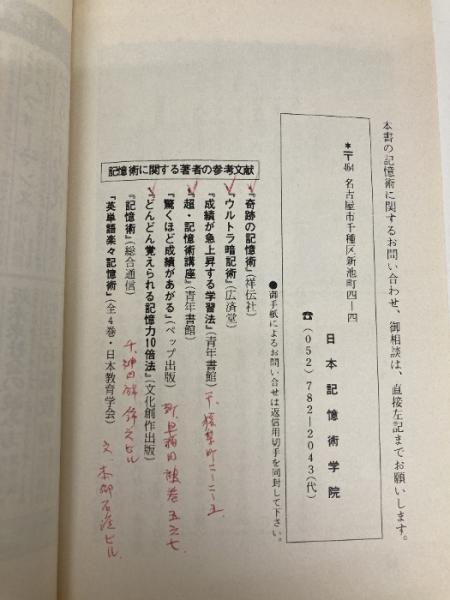 本書の記憶術に関するお問い合わせ、御相談は、直接左記までお願いします。
*〒464 名古屋市千種区新池町四—四
日本記憶術学院
☎(052)782—2043(代)
●御手紙によるお問い合せは返信用切手を同封して下さい。
記憶術に関する著者の参考文献
『奇跡の記憶術』(祥伝社)
『ウルトラ暗記術』(広済堂)
『成績が急上昇する学習法』(青年書館)
『超・記憶術講座』(青年書館)
『驚くほど成績があがる』(ペップ出版)
『どんどん覚えられる記憶力10倍法』(文化創作出版)
『記憶術』(総合通信)
『英単語楽々記憶術』(全4巻・日本教育学会)